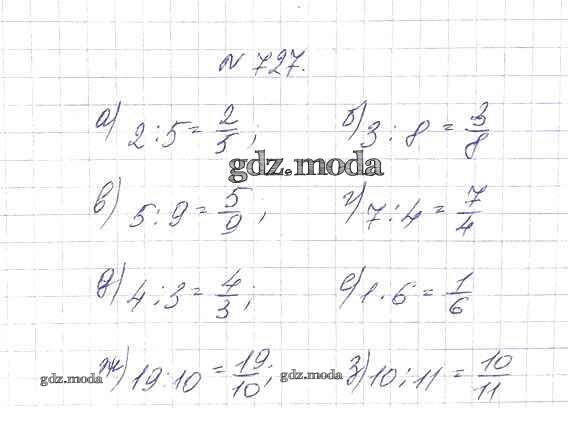 № 727.
а) 2 : 5 = 2/5; б) 3 : 8 = 3/8
gdz.moda
в) 5 : 9 = 5/9; г) 7 : 4 = 7/4
д) 4 : 3 = 4/3; е) 1 · 6 = 1/6
ж) 19 : 10 = 19/10; з) 10 : 11 = 10/11
gdz.moda gdz.moda